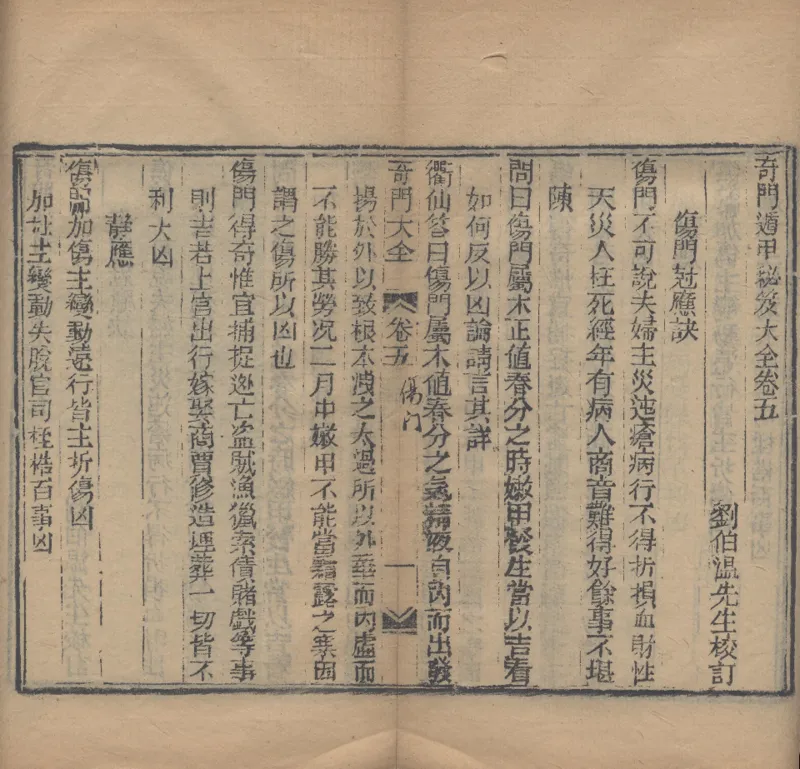 奇門遁甲秘笈大全卷五
劉伯温先生校訂
傷門尅應訣
傷門不可說夫婦主災迍瘡病行不得折損血財性
天災人枉死經年有病人商音難得好餘事不堪
陳
問曰傷門屬木正值春分之時嫩甲發生當以吉看
如何反以凶論請言其詳
衢仙答曰傷門屬木值春分之氣精液自內而出發
奇門大全 卷五 傷门 一
揚於外以致根本洩之太過所以外華而內虛而
不能勝其勞况二月中嫩甲不能當霜露之寒因
謂之傷所以凶也
傷門得奇惟宜捕捉逃亡盜賊漁獵索債賭戲等事
則吉若上官出行嫁娶商賈修造埋葬一切皆不
利大凶
静應
傷門加傷主變動遠行皆主折傷凶
加杜主變動失脫官司桎梏百事凶